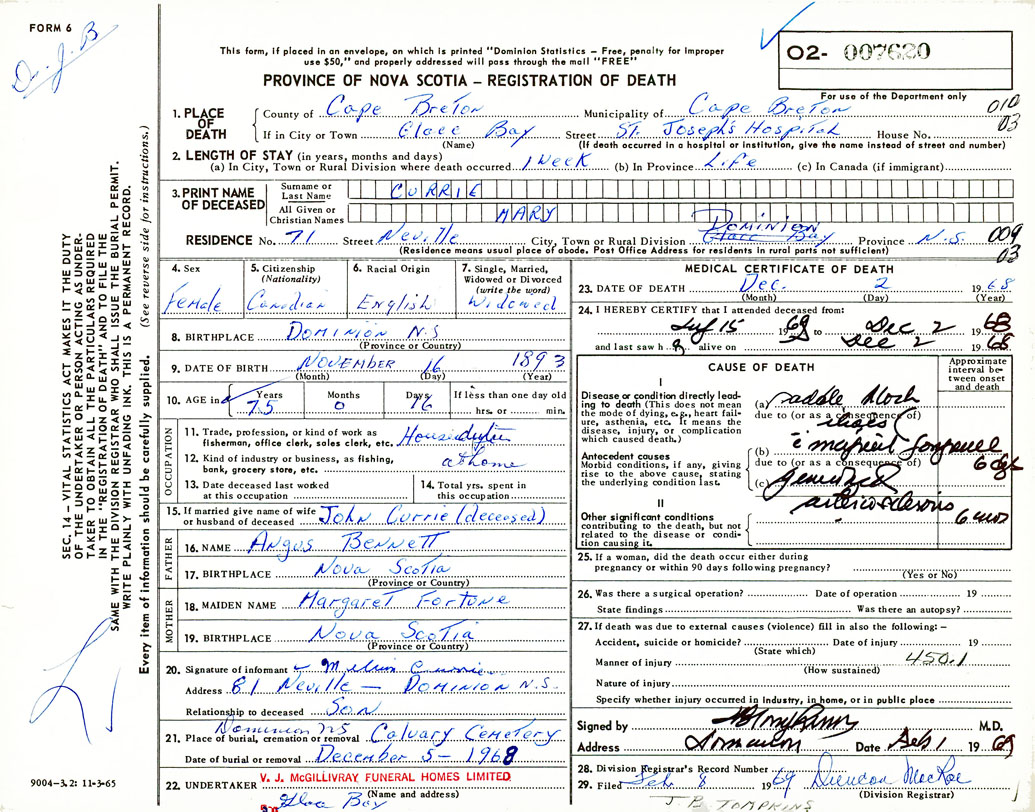 FORM 6
Dr. J. B
This form, if placed in an envelope, on which is printed "Dominion Statistics – Free, penalty for improper
use $50," and properly addressed will pass through the mail "FREE"
PROVINCE OF NOVA SCOTIA – REGISTRATION OF DEATH
O2- 007620
For use of the Department only
010
03
1. PLACE OF DEATH
County of Cape Breton Municipality of Cape Breton
If in City or Town Glace Bay Street St. Joseph's Hospital House No.
(Name) (If death occurred in a hospital or institution, give the name instead of street and number)
2. LENGTH OF STAY (in years, months and days)
(a) In City, Town or Rural Division where death occurred 1 Week (b) In Province Life (c) In Canada (if immigrant)
3. PRINT NAME OF DECEASED
Surname or Last Name CURRIE
All Given or Christian Names MARY
Dominion
RESIDENCE No. 71 Street Neville City, Town or Rural Division Glace Bay Province N.S. 009
(Residence means usual place of abode. Post Office Address for residents in rural parts not sufficient)
03
4. Sex
Female
5. Citizenship
(Nationality)
Canadian
6. Racial Origin
English
7. Single, Married,
Widowed or Divorced
(write the word)
Widowed
8. BIRTHPLACE Dominion N.S
(Province or Country)
9. DATE OF BIRTH November 16 1893
(Month) (Day) (Year)
10. AGE in
Years 75
Months 0
Days 16
If less than one day old
hrs. or min.
OCCUPATION
11. Trade, profession, or kind of work as
fisherman, office clerk, sales clerk, etc.
12. Kind of industry or business, as fishing,
bank, grocery store, etc. at home
13. Date deceased last worked
at this occupation
14. Total yrs. spent in
this occupation
15. If married give name of wife
or husband of deceased John Currie (deceased)
FATHER
16. NAME Angus Bennett
17. BIRTHPLACE Nova Scotia
(Province or Country)
MOTHER
18. MAIDEN NAME Margaret Fortune
19. BIRTHPLACE Nova Scotia
(Province or Country)
20. Signature of informant
Address 81 Neville – Dominion N.S.
Relationship to deceased Son
Dominion NS
21. Place of burial, cremation or removal Calvary Cemetery
Date of burial or removal December 5 - 1968
V. J. McGILLIVRAY FUNERAL HOMES LIMITED
22. UNDERTAKER
(Name and address)
Glace Bay
MEDICAL CERTIFICATE OF DEATH
23. DATE OF DEATH Dec. 2 1968
(Month) (Day) (Year)
24. I HEREBY CERTIFY that I attended deceased from:
15 1968 to Dec 2 1968
and last saw h alive on Dec 2 1968
CAUSE OF DEATH
Approximate interval between onset and death
I
Disease or condition directly leading
to death (This does not mean
the mode of dying, e.g., heart failure,
asthenia, etc. It means the
disease, injury, or complication
which caused death.)
(a) saddle
due to (or as a consequence of)
Antecedent causes
Morbid conditions, if any, giving
rise to the above cause, stating
the underlying condition last.
(b)
due to (or as a consequence of)
(c) generalized
II
Other significant conditions
contributing to the death, but not
related to the disease or condition
causing it.
arteriosclerosis
6 mos
25. If a woman, did the death occur either during
pregnancy or within 90 days following pregnancy?
(Yes or No)
26. Was there a surgical operation? Date of operation 19
State findings Was there an autopsy?
27. If death was due to external causes (violence) fill in also the following: –
Accident, suicide or homicide? Date of injury 19
(State which)
450.1
Manner of injury
(How sustained)
Nature of injury
Specify whether injury occurred in industry, in home, or in public place
Signed by M.D.
Address Dominion Date Feb 1 1969
28. Division Registrar's Record Number
29. Filed Feb 8 1969
(Division Registrar)
J.B. TOMPKINS
SEC. 14 – VITAL STATISTICS ACT MAKES IT THE DUTY
OF THE UNDERTAKER OR PERSON ACTING AS UNDERTAKER
TO OBTAIN ALL THE PARTICULARS REQUIRED
IN THE "REGISTRATION OF DEATH" AND TO FILE THE
SAME WITH THE DIVISION REGISTRAR WHO SHALL ISSUE THE BURIAL PERMIT.
WRITE PLAINLY WITH UNFADING INK. THIS IS A PERMANENT RECORD.
Every item of information should be carefully supplied. (See reverse side for instructions.)
9004–3.2: 11-3-65